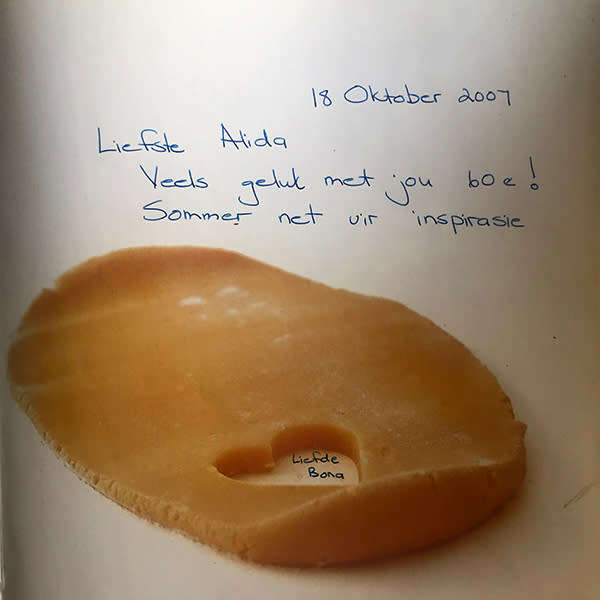 18 Oktober 2007
Liefste Alida
Veels geluk met jou 60e!
Sommer net vir inspirasie
Liefde
Bona